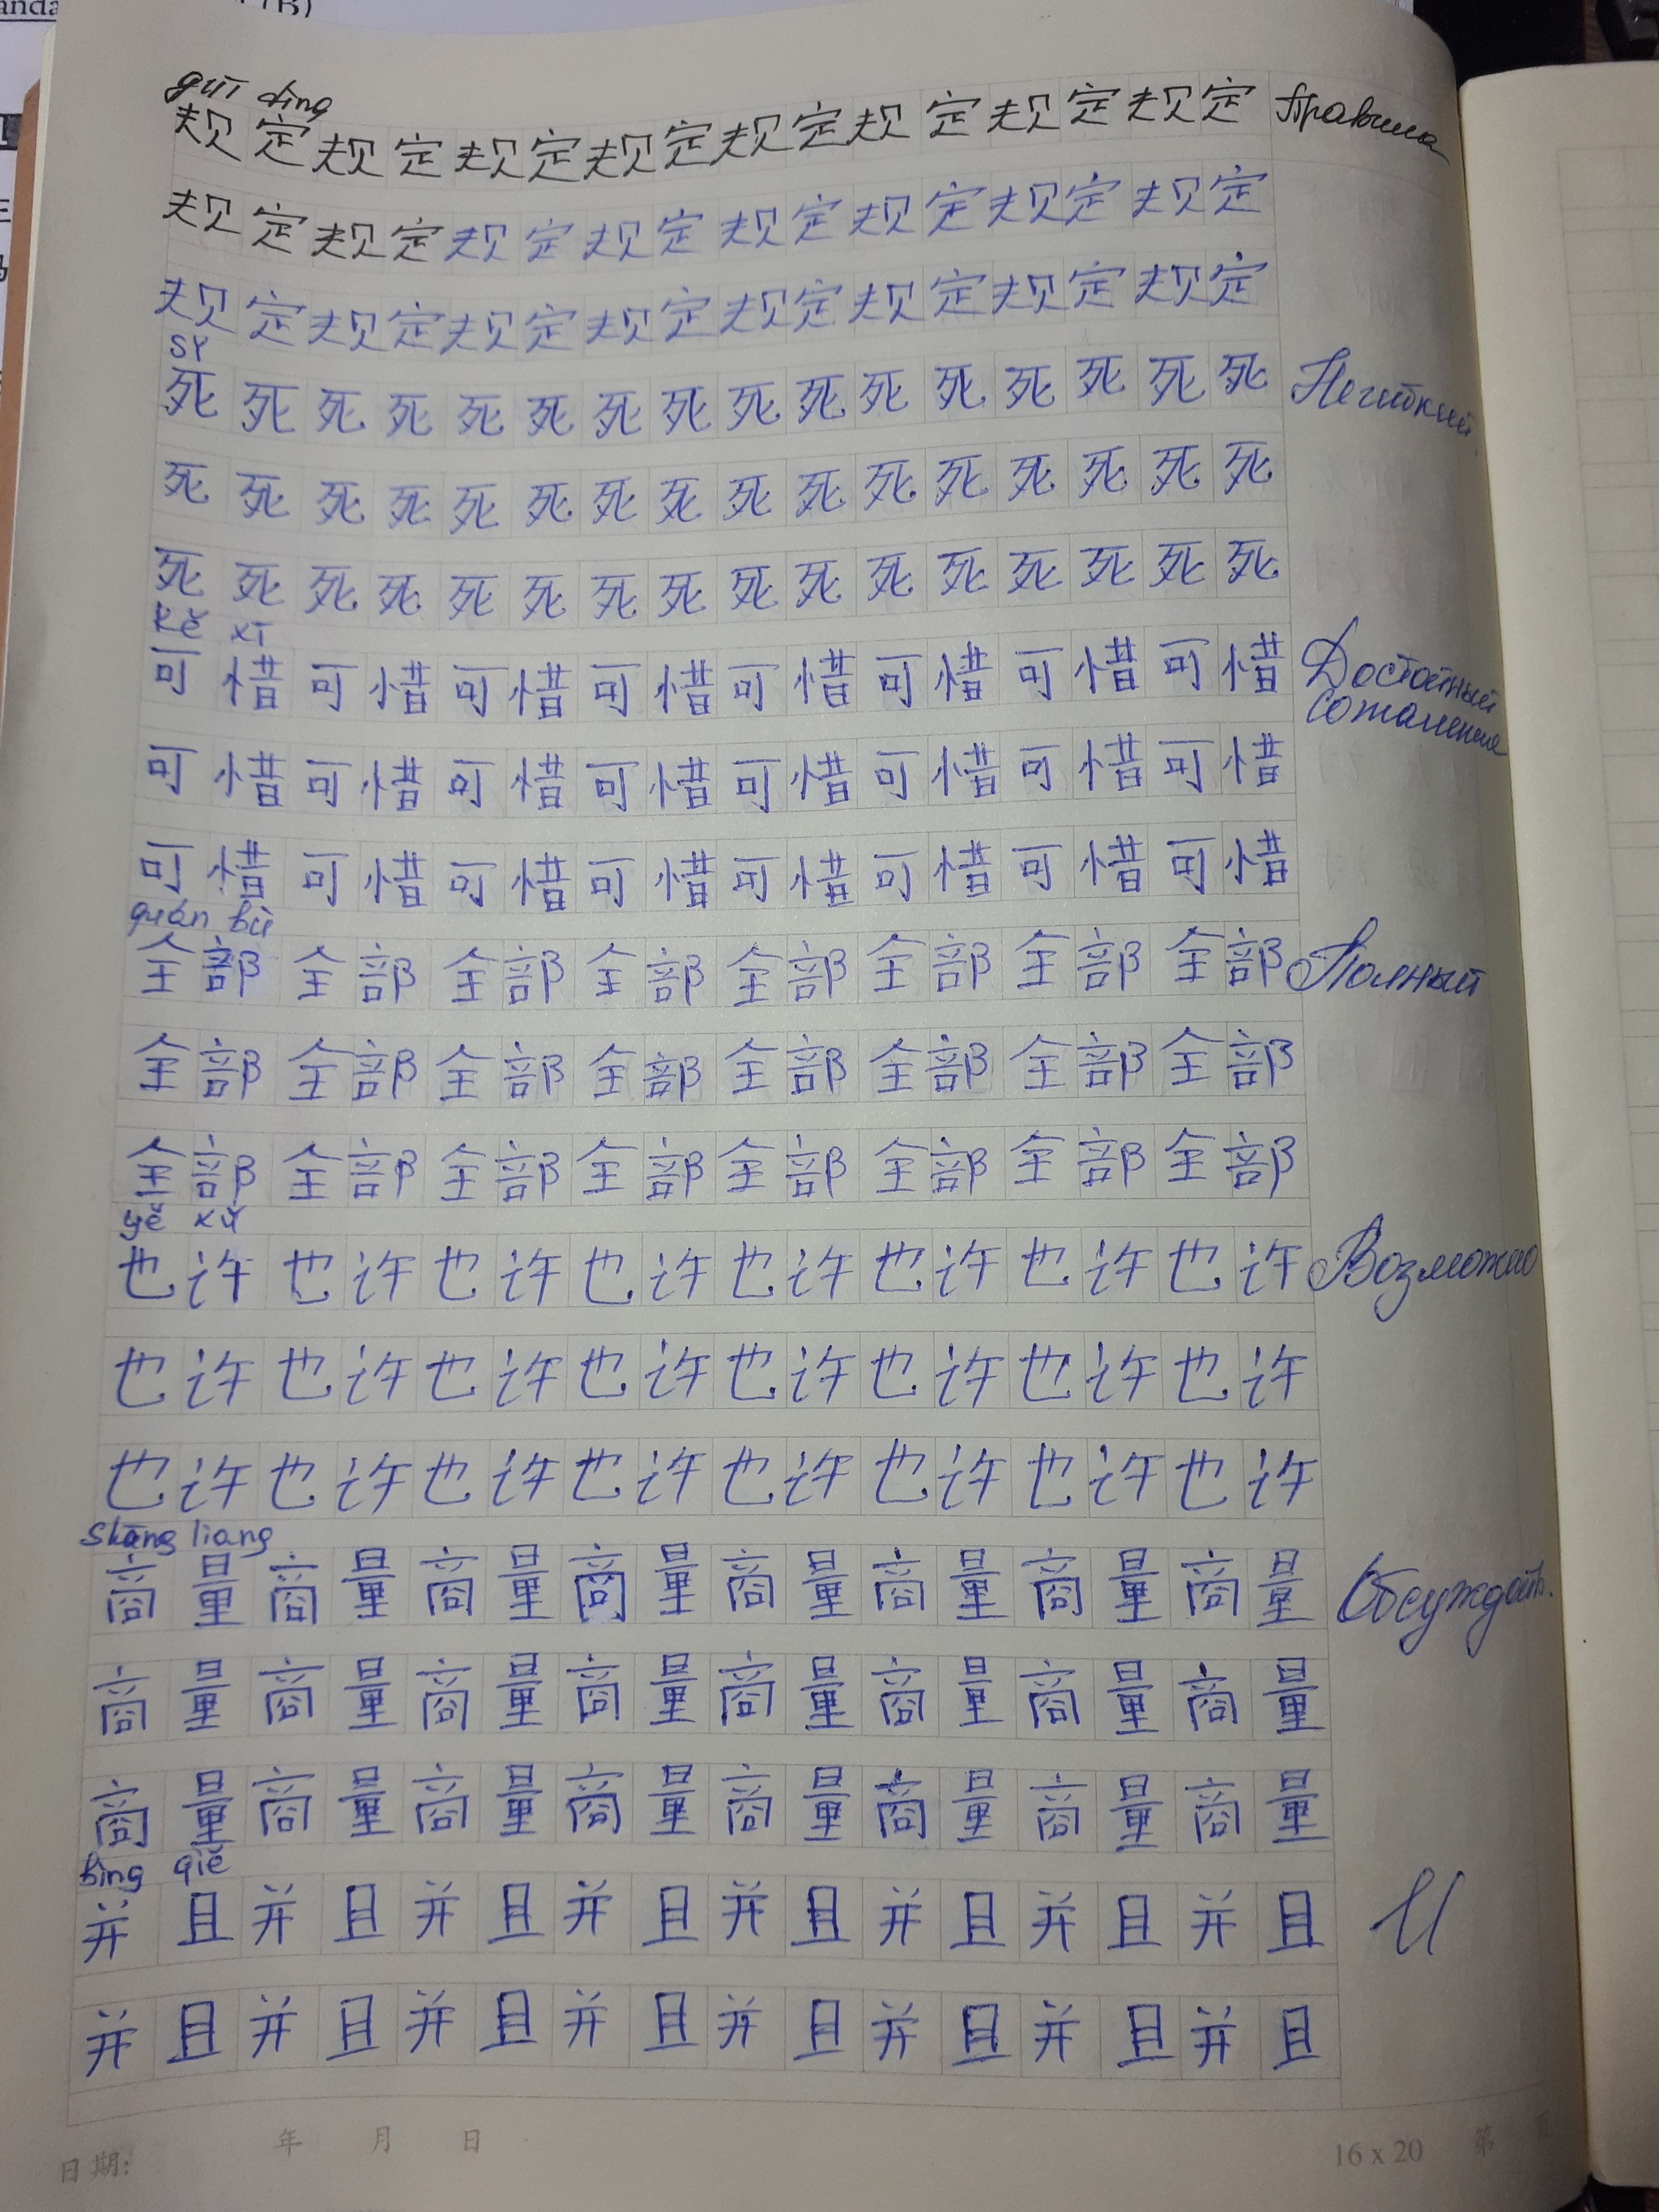 guī dìng
规定规定规定规定规定规定规定规定 Правила
规定规定规定规定规定规定规定规定
规定规定规定规定规定规定规定规定
sǐ
死死死死死死死死死死死死死死死死 Негибкий
死死死死死死死死死死死死死死死死
死死死死死死死死死死死死死死死死
kě xī
可惜可惜可惜可惜可惜可惜可惜可惜 Достойный сожаления
可惜可惜可惜可惜可惜可惜可惜可惜
可惜可惜可惜可惜可惜可惜可惜可惜
quán bù
全部全部全部全部全部全部全部全部 Полный
全部全部全部全部全部全部全部全部
全部全部全部全部全部全部全部全部
yě xǔ
也许也许也许也许也许也许也许也许 Возможно
也许也许也许也许也许也许也许也许
也许也许也许也许也许也许也许也许
shāng liang
商量商量商量商量商量商量商量商量 Обсуждать.
商量商量商量商量商量商量商量商量
商量商量商量商量商量商量商量商量
bìng qiě
并且并且并且并且并且并且并且并且 И
并且并且并且并且并且并且并且并且
日期: 年 月 日 16 x 20 第